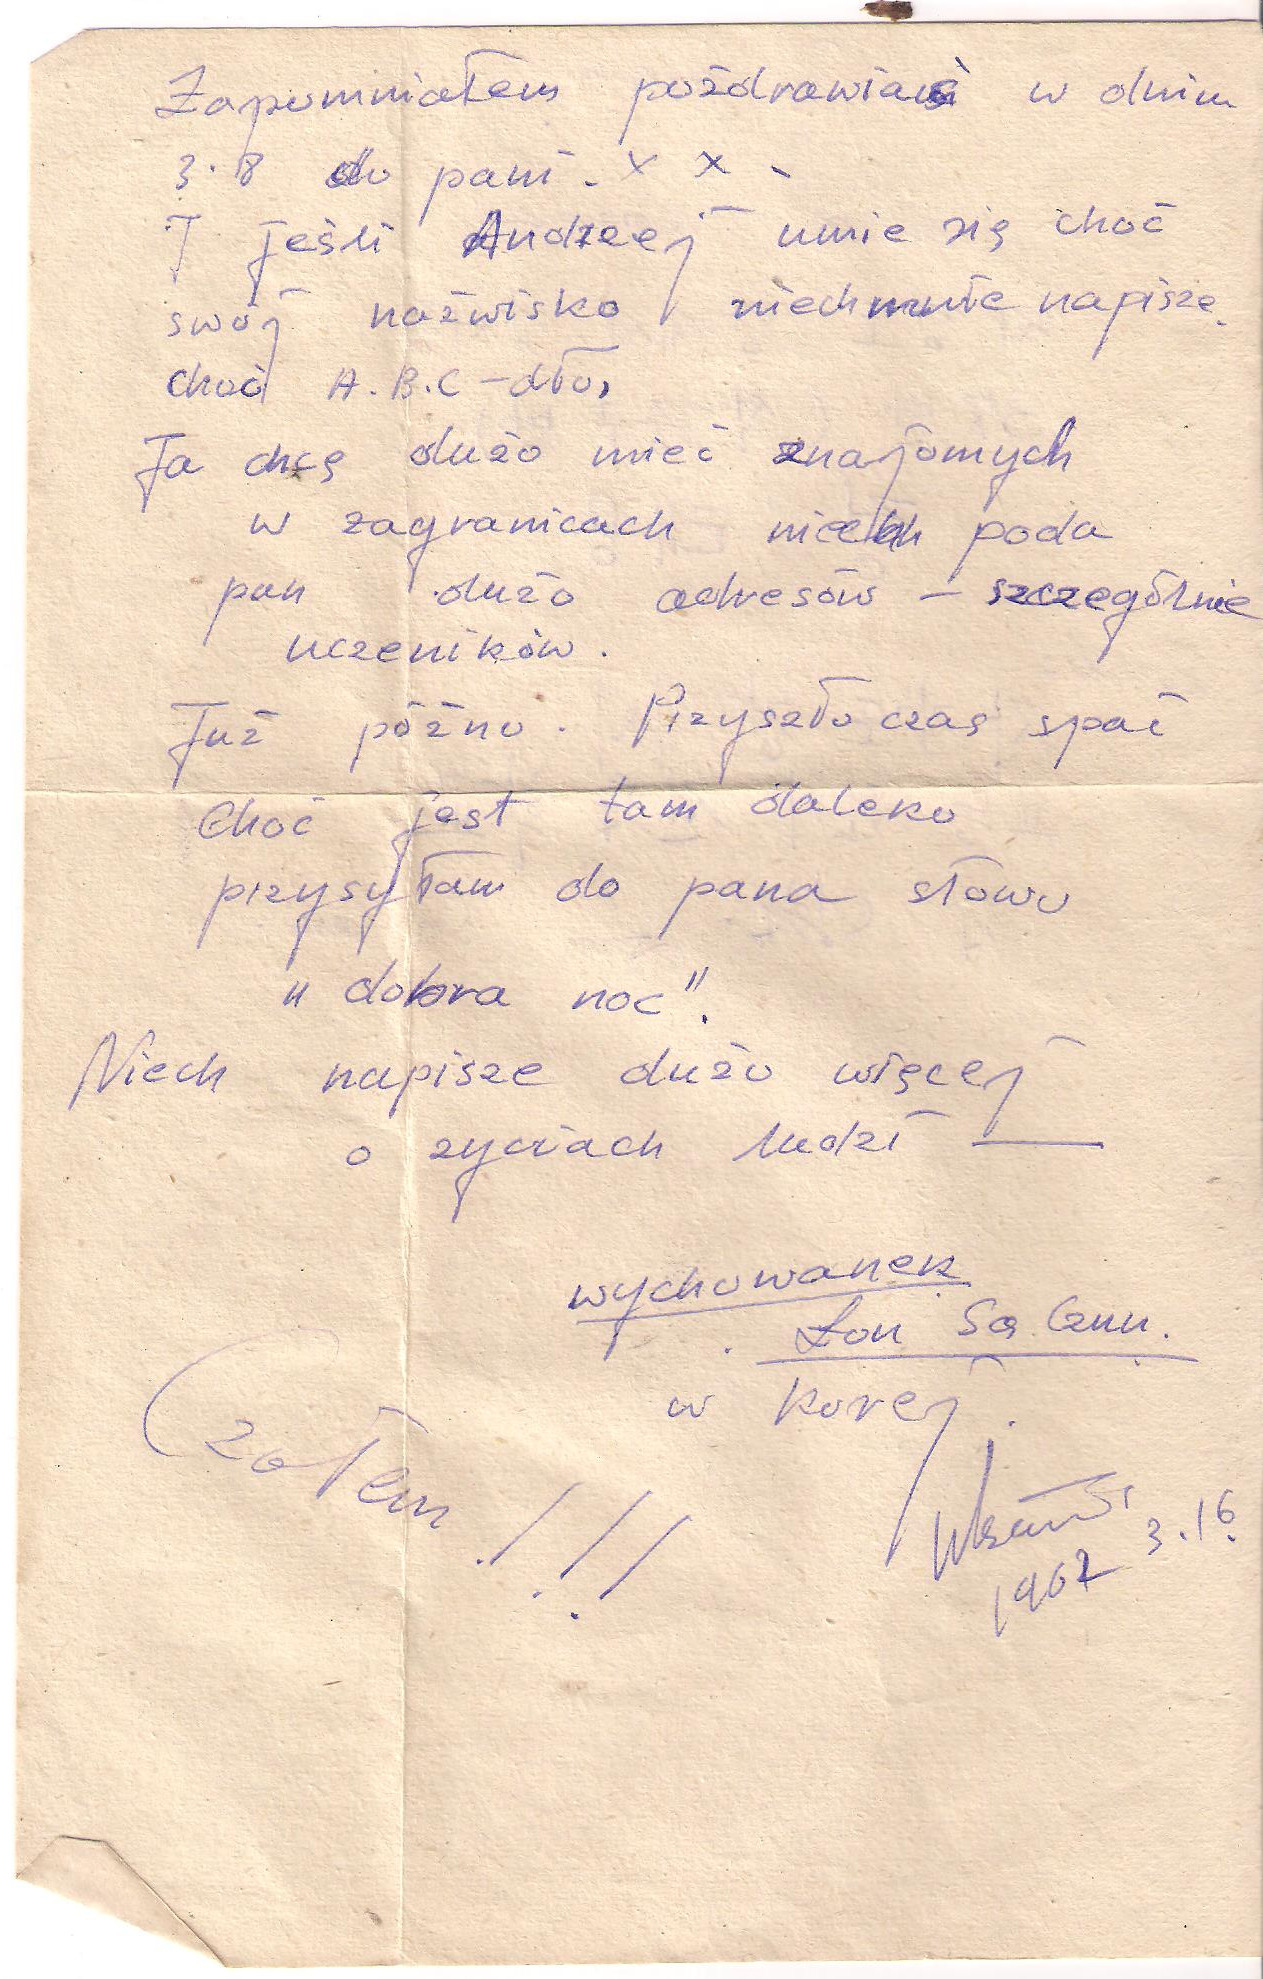 Zapomniałem poźdrawiać w dnim
3.8 do pani. x x -
I jeśli Andrzej umie się choć
swój naźwisko niech mnie napisze.
choć A.B.C - dło,
Ja chcę dużo mieć znajomych
w zagranicach niech poda
pan dużo adresów - szczególnie
uczeników.
Już późno. Przyszło czas spać
Choć jest tam daleko
przysyłam do pana słowo
"dobra noc".
Niech napisze dużo więcej
o zyciach ludzi —
wychowanek
w Korej.
Czołem!!!
1962 3.16.